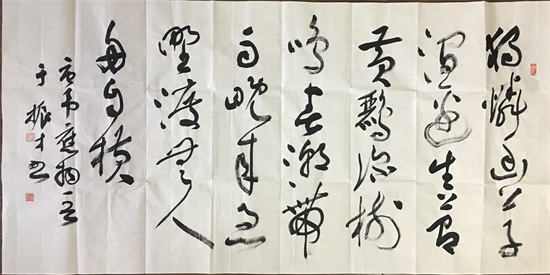 独憐幽草
澗邊生上有
黃鸝深樹
鳴春潮帶
雨晚來急
野渡無人
舟自橫
韋應物
于振才書